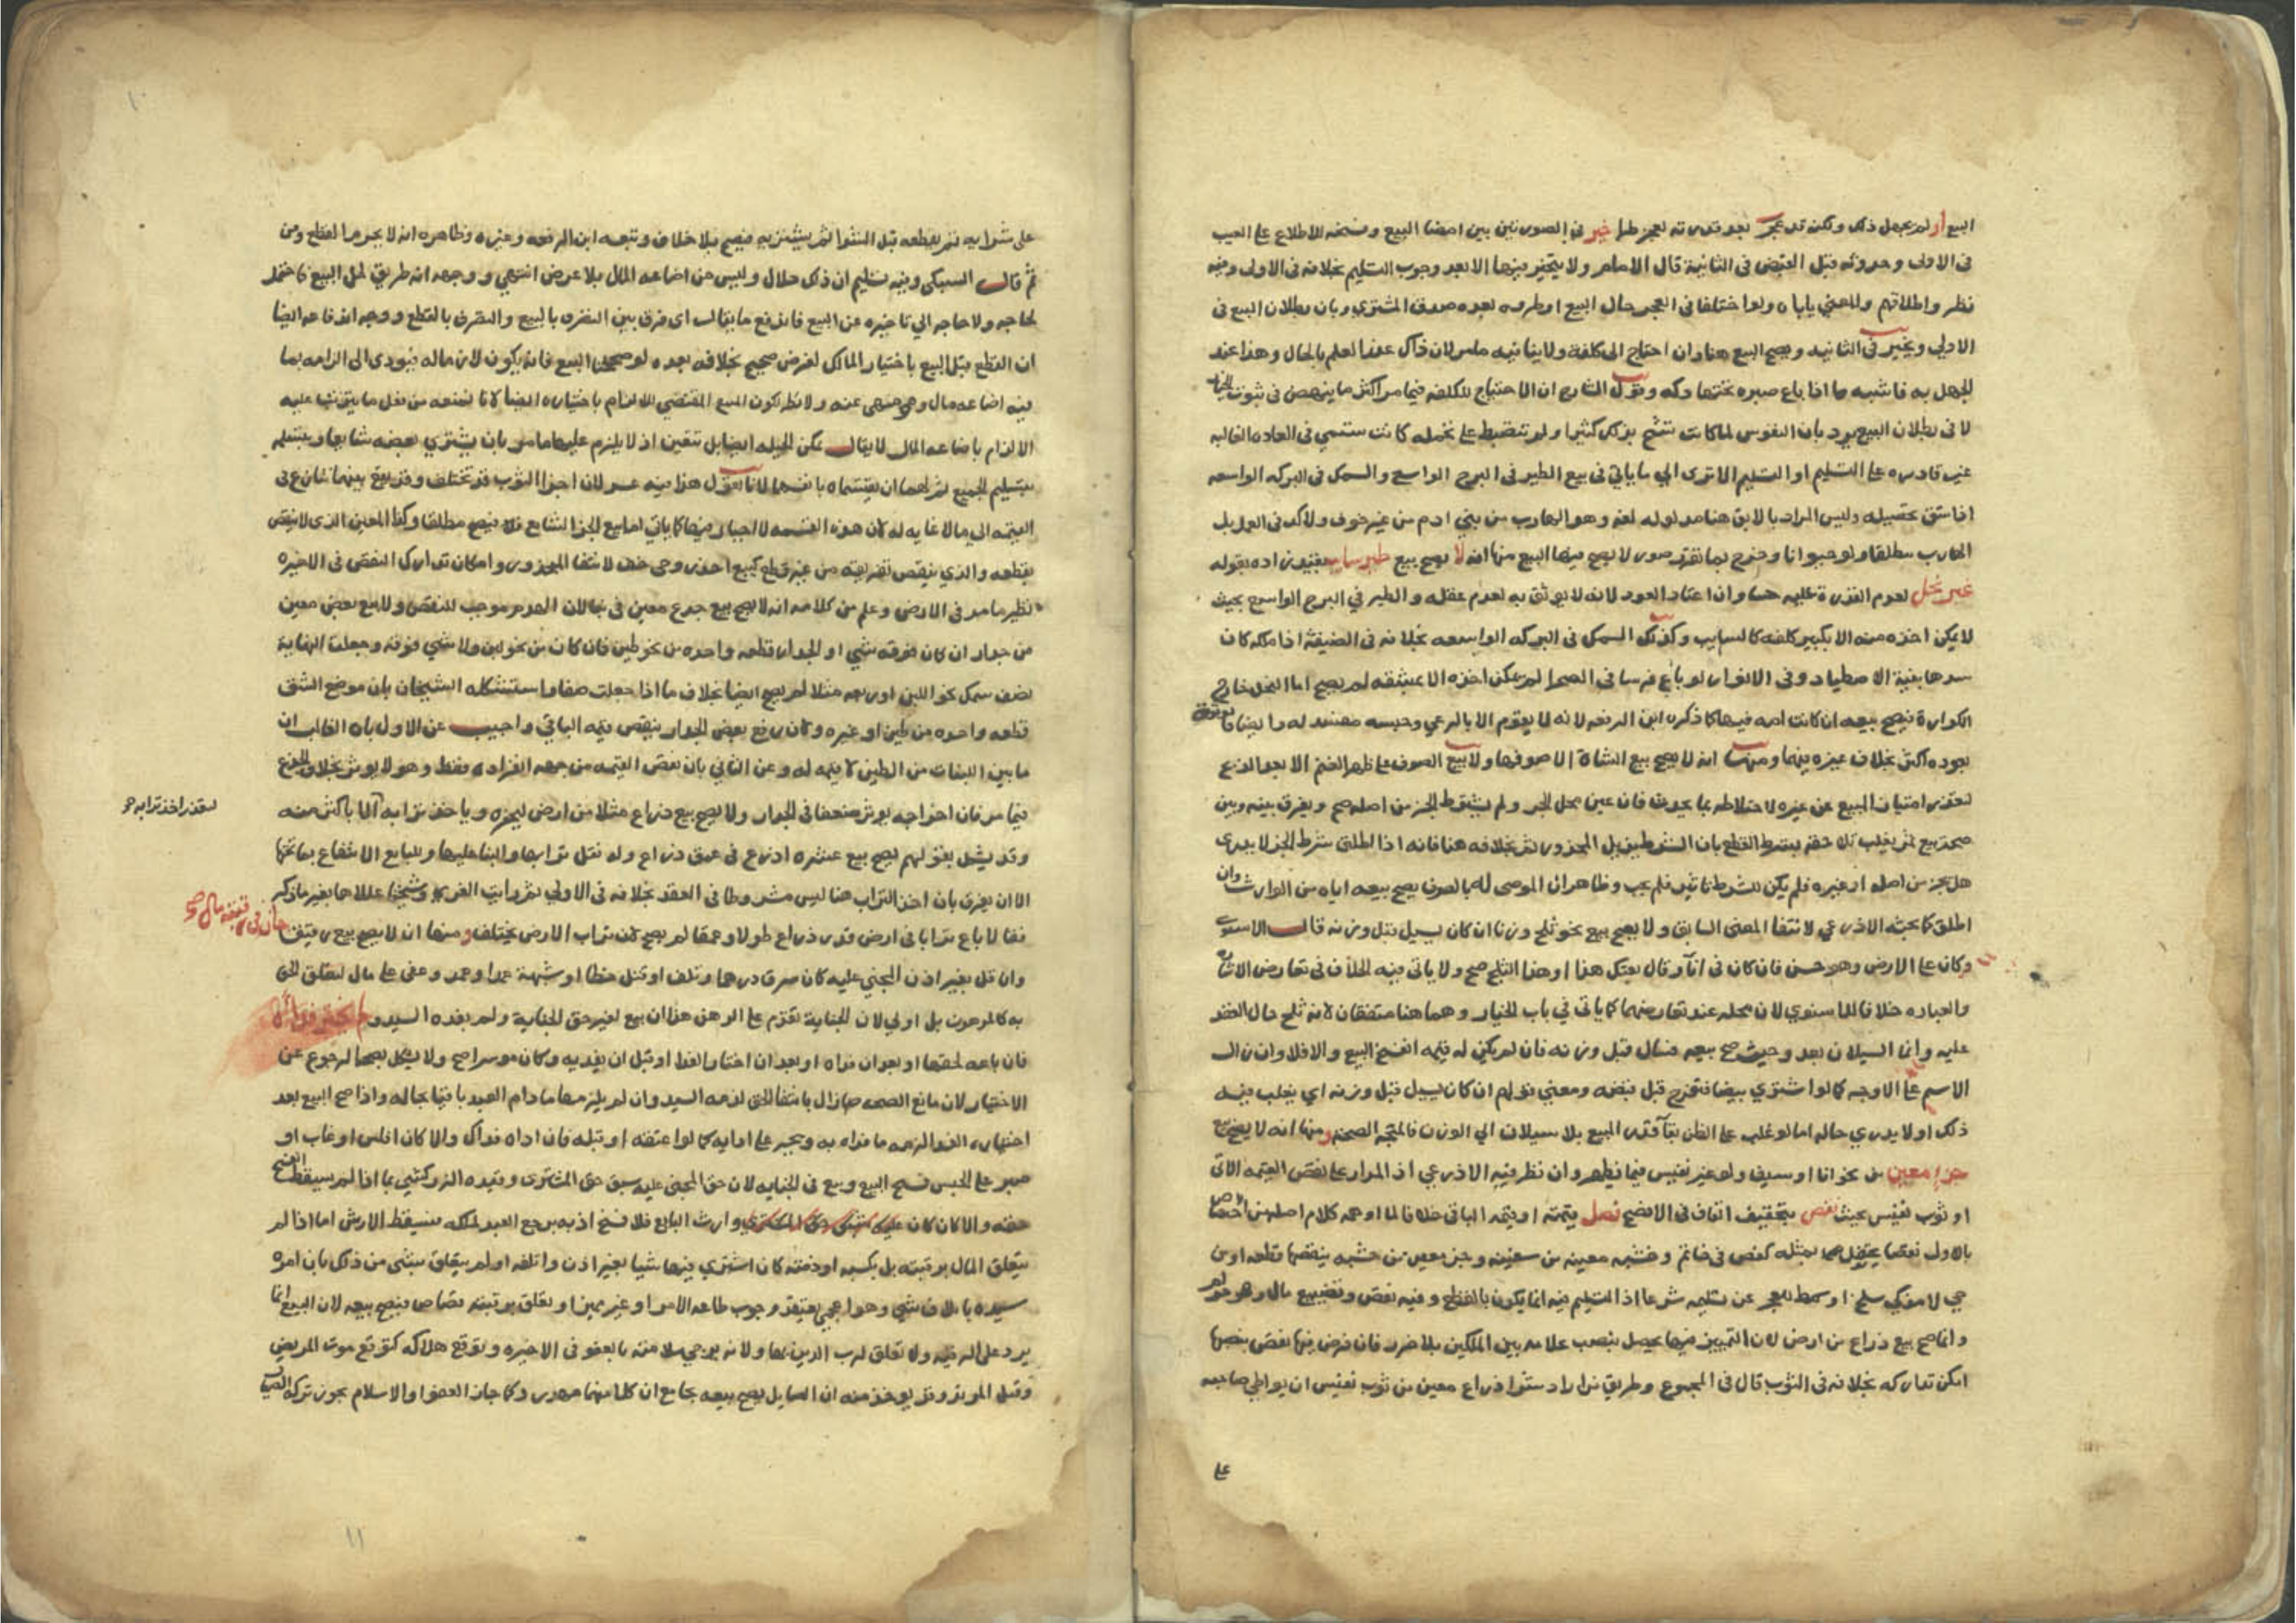 البيع او لم يجهل ذلك ولكن تعجز بعد قدرته لعجز طرا خير في الصورتين بين امضا البيع وفسخه للاطلاع على العيب
في الاولى وحدوثه قبل القبض في الثانية قال الامام ولا يتخير فيها الا بعد وجوب التسليم بخلافه في الاولى وفيه
نظر واطلاقهم والمعنى ياباه ولو اختلفا في العجز حال البيع او طروه بعده صدق المشتري وبان بطلان البيع في
الاولى ويخير في الثانية ويصح البيع هنا وان احتاج الى كلفة ولا ينافيه ما مر لان ذاك عند العلم بالحال وهذا عند
الجهل به فاشبه ما اذا باع صبره تحتها دكه وقول الشارح ان الاحتياج للكلفه فيما مر اكثر ما ينهض في ثبوت الخيار
لا في بطلان البيع يرد بان النفوس لما كانت تشح بذلك كثيرا ولم تنضبط على تحمله كانت ستنتمي في العاده الغالبه
غير قادره على التسليم او التسلم الا ترى الى ما ياتي في بيع الطير في البرج الواسع والسمك في البركه الواسعه
اذا شق تحصيله وليس المراد بالابق هنا مدلوله لغة وهو الهارب من بني ادم من غير خوف ولا كد في العمل بل
الهارب مطلقا ولو حيوانا وخرج بما تقرر صور لا يصح فيها البيع منها انه لا يصح بيع طير سايب بقيد زاده بقوله
غير نحل لعدم القدرة عليه حسا وان اعتاد العود لانه لا يوثق به لعدم عقله والطير في البرج الواسع بحيث
لا يمكن اخذه منه الا بكبير كلفه كالسايب وكذلك السمك في البركه الواسعه بخلافه في الضيقة اذا مكله كان
سدها بقية الاصطياد وفي الانوار لو باع فرسا في الصحرا لم يمكن اخذه الا بمشقه لم يصح اما النحل خارج
الكوارة فيصح بيعه ان كانت امه فيها كما ذكره ابن الرفعه لانه لا يقوم الا بالرعي وحبسه مفسد له وايضا فالوثوق
بعوده اكثر بخلاف غيره فيهما ومنها انه لا يصح بيع الشاة الا صوفها ولا بيع الصوف على ظهر الغنم الا بعد الذبح
لتعذر امتياز المبيع عن غيره لاختلاطه بما يحدث فان عين محل الجز ولم يشترط الجز من اصله صح ويفرق بينه وبين
صحة بيع ثمر يغلب تلاحقه بشرط القطع بان الشرط مزيل المحذور ثم بخلافه هنا فانه اذا اطلق شرط الجز لا يدرى
هل يجز من اصله او غيره فلم يكن للشرط تاثير فلم يجب وظاهر ان الموصى له بالصوف يصح بيعه اياه من الوارث وان
اطلق كما بحثه الاذرعي لانتفا المعنى السابق ولا يصح بيع نحو ثلج وزنا ان كان يسيل قبل وزنه قال الاسنوي
وكان على الارض وهو حسن فان كان في انا وقال بعتك هذا او هذا الثلج صح ولا ياتي فيه الخلاف في تعارض الاشارة
والعباره خلافا للاسنوي لان محله عند تعارضهما كما ياتي في باب الخيار وهما هنا متفقان لانه ثلج حال العقد
عليه وانما السيلان بعد وحيث صح بيعه فسال قبل وزنه فان لم يكن له قيمه انفسخ البيع والا فلا وان زال
الاسم على الاوجه كما لو اشترى بيضا ففرخ قبل قبضه ومعنى قولهم ان كان يسيل قبل وزنه اي يغلب فيه
ذلك او لا يدري حاله اما لو غلب على الظن بقا قدر المبيع بلا سيلان الى الوزن فالمتجه الصحه ومنها انه لا يصح بيع
جزء معين من نحو انا او سيف ولو غير نفيس فيما يظهر وان نظر فيه الاذرعي اذ المدار على نقص القيمه الاتي
او ثوب نفيس بحيث نقص بتخفيف القاف في الافصح فصل قيمته او قيمه الباقي خلافا لما اوهمه كلام اصله من اختصاصه
بالاول نقصا يحتفل بمثله كفص في خاتم وخشبه معينه من سفينه وجز معين من خشبه ينقصها قطعه او من
حي لا مذكي سلخ او سمط للعجز عن تسليمه شرعا اذ التسليم فيه انما يكون بالقطع وفيه نقص وتضييع مال وهو حرام
وانما صح بيع ذراع من ارض لان التمييز فيها يحصل بنصب علامه بين الملكين بلا ضرر فان فرض فيها نقص بعضها
امكن تداركه بخلافه في الثوب قال في المجموع وطريق من اراد شرا ذراع معين من ثوب نفيس ان يواطي صاحبه
على
على شرايه ثم يقطعه قبل الشرا ثم يشتريه فيصح بلا خلاف وتبعه ابن الرفعه وغيره وظاهره انه لا يحرم القطع ومن
ثم قال السبكي وفيه تسليم ان ذلك حلال وليس من اضاعه المال بلا غرض انتهى ووجهه انه طريق لحل البيع فاحتمل
لحاجه ولا حاجه الى تاخيره عن البيع فاندفع ما يقال اي فرق بين التفرقه بالبيع والتفرق بالقطع ووجه اندفاعه ايضا
ان القطع قبل البيع باختيار المالك لغرض صحيح بخلافه بعده لو صححنا البيع فانه يكون لازما له فيودي الى الزامه بما
فيه اضاعه مال وهي منهي عنه ولا نظر لكون المبيع المقتضي للالزام باختياره ايضا لانا نمنعه من فعل ما يترتب عليه
الالزام باضاعه المال لا يقال يمكن الحيله ايضا بل تتعين اذ لا يلزم عليها ما مر بان يشتري بعضه شايعا ويتسلمه
بتسليم الجميع ثم لهما ان يقتسماه بانفسهما لانا نقول هذا فيه عسر لان اجزا الثوب قد تختلف وقد يقع بينهما تنازع في
القيمه الى ما لا غايه له لان هذه القسمه لا اجبار فيها كما ياتي اما بيع الجز الشايع فلا فيصح مطلقا وكذا المعين الذي لا ينقص
بقطعه والذي ينقص تفريقه من غير قطع كبيع احد زوجي خف لانتفا المحذور وامكان تدارك النقص في الاخيره
نظير ما مر في الارض وعلم من كلامه انه لا يصح بيع جذع معين في بنا لان الهدم يوجب النقص ولا بيع بعض معين
من جدار ان كان فوقه شي او الجدار قطعه واحده من نحو طين فان كان من نحو لبن ولا شي فوقه وجعلت النهاية
نصف سمك نحو اللبن او ربعه مثلا لم يصح ايضا بخلاف ما اذا جعلت صفا واستشكله الشيخان بان موضع الشق
قطعه واحده من طين او غيره وكان رفع بعض الجدار ينقص قيمه الباقي واجيب عن الاول بان الغالب ان
ما بين اللبنات من الطين لا قيمه له وعن الثاني بان نقص القيمه من جهه انفراده فقط وهو لا يوثر بخلاف الجذع
فيما مر فان اخراجه يوثر ضعفا في الجدار ولا يصح بيع ذراع مثلا من ارض ليحفره وياخذ ترابه الا باكثر منه
وقد يشكل بقولهم يصح بيع عشره اذرع في عمق ذراع وله نقل ترابها والبنا عليها وللبايع الانتفاع بما تحتها
الا ان يفرق بان اخذ التراب هنا ليس مشروطا في العقد بخلافه في الاولى ثم رايت الغزي وشيخنا عللاها بغير ما ذكر
فقالا لو باع ترابا في ارض قدر ذراع طولا وعمقا لم يصح لان تراب الارض يختلف ومنها ان لا يصح بيع رقيق
جان في رقبته مال صح
لتعذر اخذ ترابه صح
وان قل بغير اذن المجني عليه كان سرق درهما وتلف او قتل خطا او شبهة عمدا وعمد وعفي على مال لتعلق الحق
به كالمرهون بل اولى لان الجناية تقدم على الرهن هذا ان بيع لغير حق الجناية ولم يفده السيد ولم يختر فداه
فان باعه لحقها او بعد ان فداه او بعد ان اختار الفدا او قبل ان يفديه وكان موسرا صح ولا يشكل بصحة الرجوع عن
الاختيار لان مانع الصحه زال بانتقال الحق لذمه السيد وان لم يلزمها ما دام العبد باقيا بحاله واذا صح البيع بعد
اختياره الفدا لزمه ما فداه به ويجبر على ادايه كما لو اعتقه او قتله فان اداه فذاك والا كان افلس او غاب او
صبر على الحبس فسخ البيع وبيع في الجنايه لان حق المجني عليه سبق حق المشتري وقيده الزركشي بما اذا لم يسقط الفسخ
حقه والا كان كان وارث البايع فلا فسخ اذ به يرجع العبد لملكه فيسقط الارش اما اذا لم
يتعلق المال برقبته بل بكسبه او ذمته كان اشترى فيها شيا بغير اذن واتلفه او لم يتعلق بشي من ذلك بان امره
سيده باتلاف شي وهو اعجمي يعتقد وجوب طاعه الامر او غير مميز او تعلق برقبته قصاص فيصح بيعه لان البيع انما
يرد على الرقبه ولا تعلق لرب الدين بها ولانه يرجى سلامته بالعفو في الاخيره وتوقع هلاكه كتوقع موت المريض
وقبل المرتد وقد يوخذ منه ان الصايل يصح بيعه بجامع ان كلا منهما مهدر وكما جاز العفو او الاسلام يجوز تركه الصيال
١٠
١١